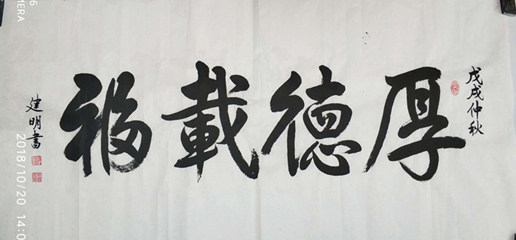 戊戌仲秋
厚德載福
建明書
2018/10/20 14:0
MERA